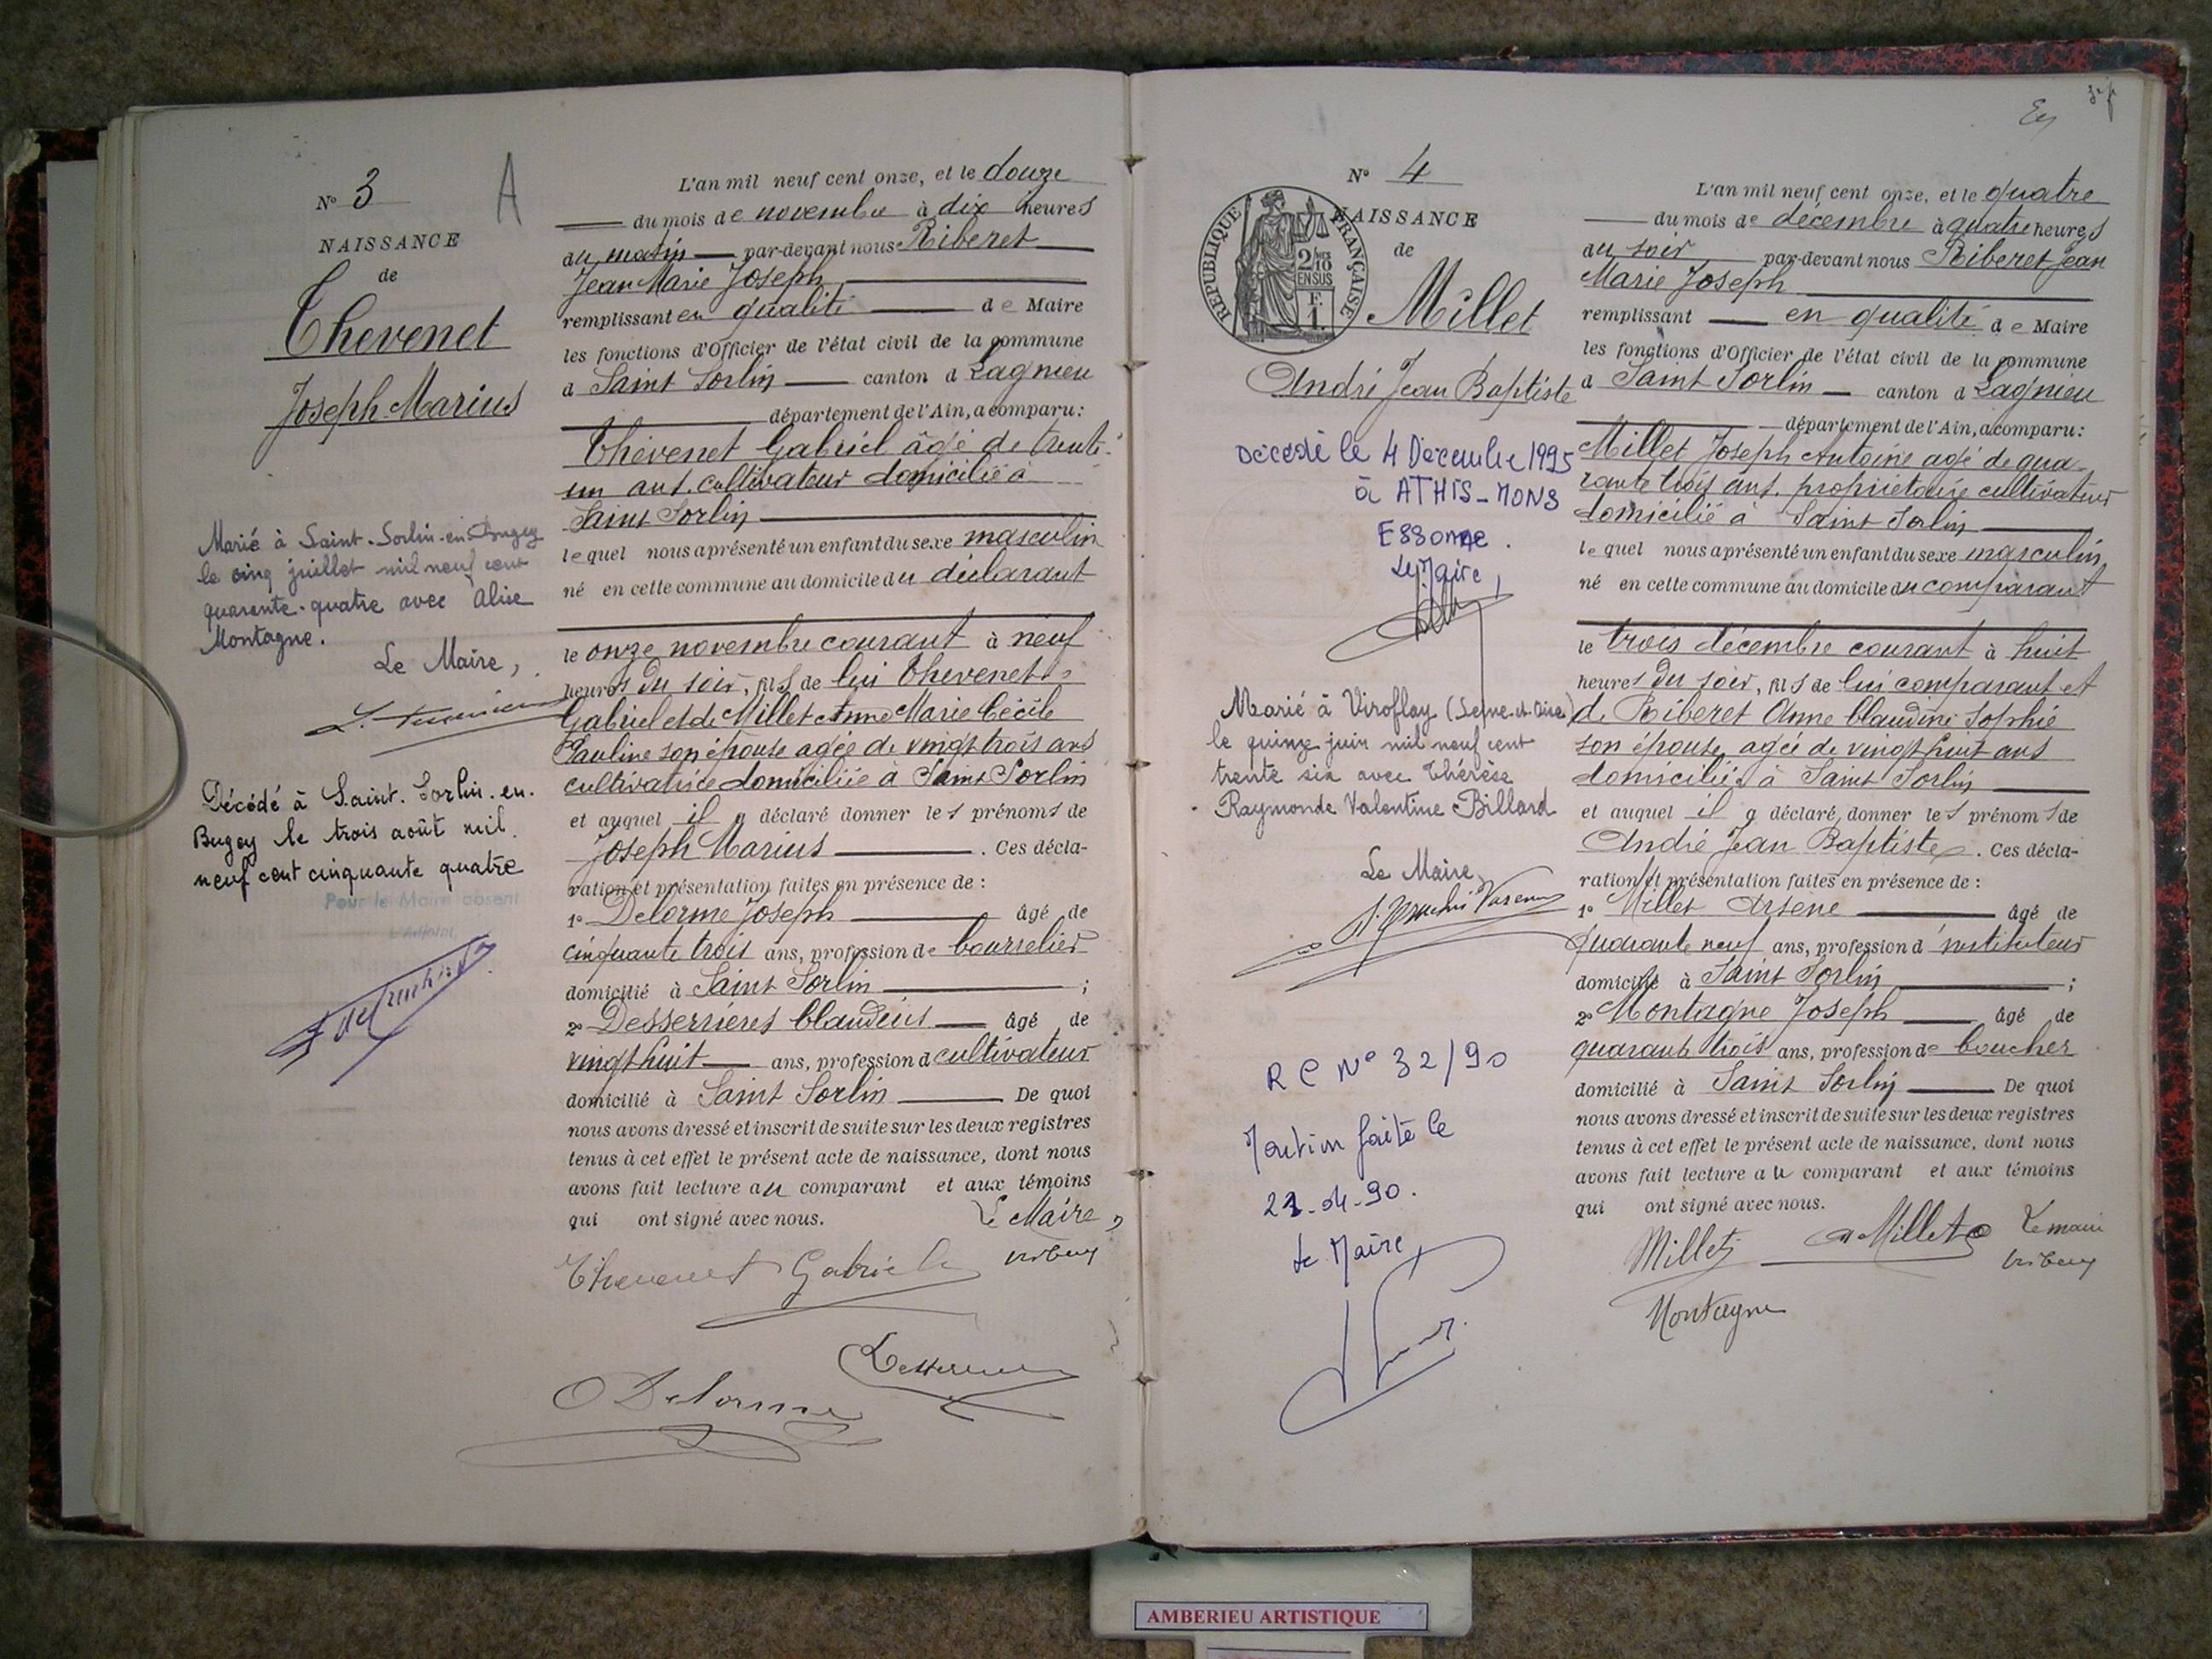 N° 3
A
NAISSANCE
de
Thevenet
Joseph Marius
Marié à Saint-Sorlin-en-Bugey
le cinq juillet mil neuf cent
quarante-quatre avec Alice
Montagne.
Le Maire,
Décédé à Saint-Sorlin-en-
Bugey le trois août mil
neuf cent cinquante quatre
Pour le Maire absent
L'Adjoint,
L'an mil neuf cent onze, et le douze
du mois de novembre à dix heures
du matin par-devant nous Riberet
Jean Marie Joseph
remplissant en qualité de Maire
les fonctions d'Officier de l'état civil de la commune
d Saint Sorlin canton d Lagnieu
département de l'Ain, a comparu:
Thévenet Gabriel âgé de trente-
un ans. cultivateur domicilié à
Saint Sorlin
lequel nous a présenté un enfant du sexe masculin
né en cette commune au domicile du déclarant
le onze novembre courant à neuf
heures du soir, fils de lui Thevenet
Gabriel et de Millet Anne Marie Cécile
Pauline son épouse agée de vingt trois ans
cultivatrice domiciliée à Saint Sorlin
et auquel il a déclaré donner les prénoms de
Joseph Marius . Ces décla-
ration et présentation faites en présence de :
1° Delorme Joseph âgé de
cinquante trois ans, profession de bourrelier
domicilié à Saint Sorlin ;
2° Desserrières Claudius âgé de
vingt huit ans, profession d cultivateur
domicilié à Saint Sorlin De quoi
nous avons dressé et inscrit de suite sur les deux registres
tenus à cet effet le présent acte de naissance, dont nous
avons fait lecture au comparant et aux témoins
qui ont signé avec nous.
Le Maire,
Thevenet Gabriel
Delorme
N° 4
RÉPUBLIQUE FRANÇAISE
2/10
EN SUS
F.
1.
NAISSANCE
de
Millet
André Jean Baptiste
Décédé le 4 Décembre 1995
à ATHIS-MONS
Essonne.
Le Maire,
Marié à Viroflay (Seine-et-Oise)
le quinze juin mil neuf cent
trente six avec Thérèse
Raymonde Valentine Billard
Le Maire,
RC N° 32/90
Mention faite le
21-04-90.
Le Maire,
L'an mil neuf cent onze, et le quatre
du mois de décembre à quatre heures
du soir par-devant nous Riberet Jean
Marie Joseph
remplissant en qualité de Maire
les fonctions d'Officier de l'état civil de la commune
d Saint Sorlin canton d Lagnieu
département de l'Ain, a comparu:
Millet Joseph Antoine agé de qua-
rante trois ans. propriétaire cultivateur
domicilié à Saint Sorlin
lequel nous a présenté un enfant du sexe masculin
né en cette commune au domicile du comparant
le trois décembre courant à huit
heures du soir, fils de lui comparant et
de Riberet Anne Claudine Sophie
son épouse, agée de vingt huit ans
domiciliée à Saint Sorlin
et auquel il a déclaré donner les prénoms de
André Jean Baptiste . Ces décla-
ration et présentation faites en présence de :
1° Millet Arsene âgé de
quarante neuf ans, profession d'instituteur
domicilié à Saint Sorlin ;
2° Montagne Joseph âgé de
quarante trois ans, profession de boucher
domicilié à Saint Sorlin De quoi
nous avons dressé et inscrit de suite sur les deux registres
tenus à cet effet le présent acte de naissance, dont nous
avons fait lecture au comparant et aux témoins
qui ont signé avec nous.
Millet A Millet Le maire
Montagne
AMBERIEU ARTISTIQUE